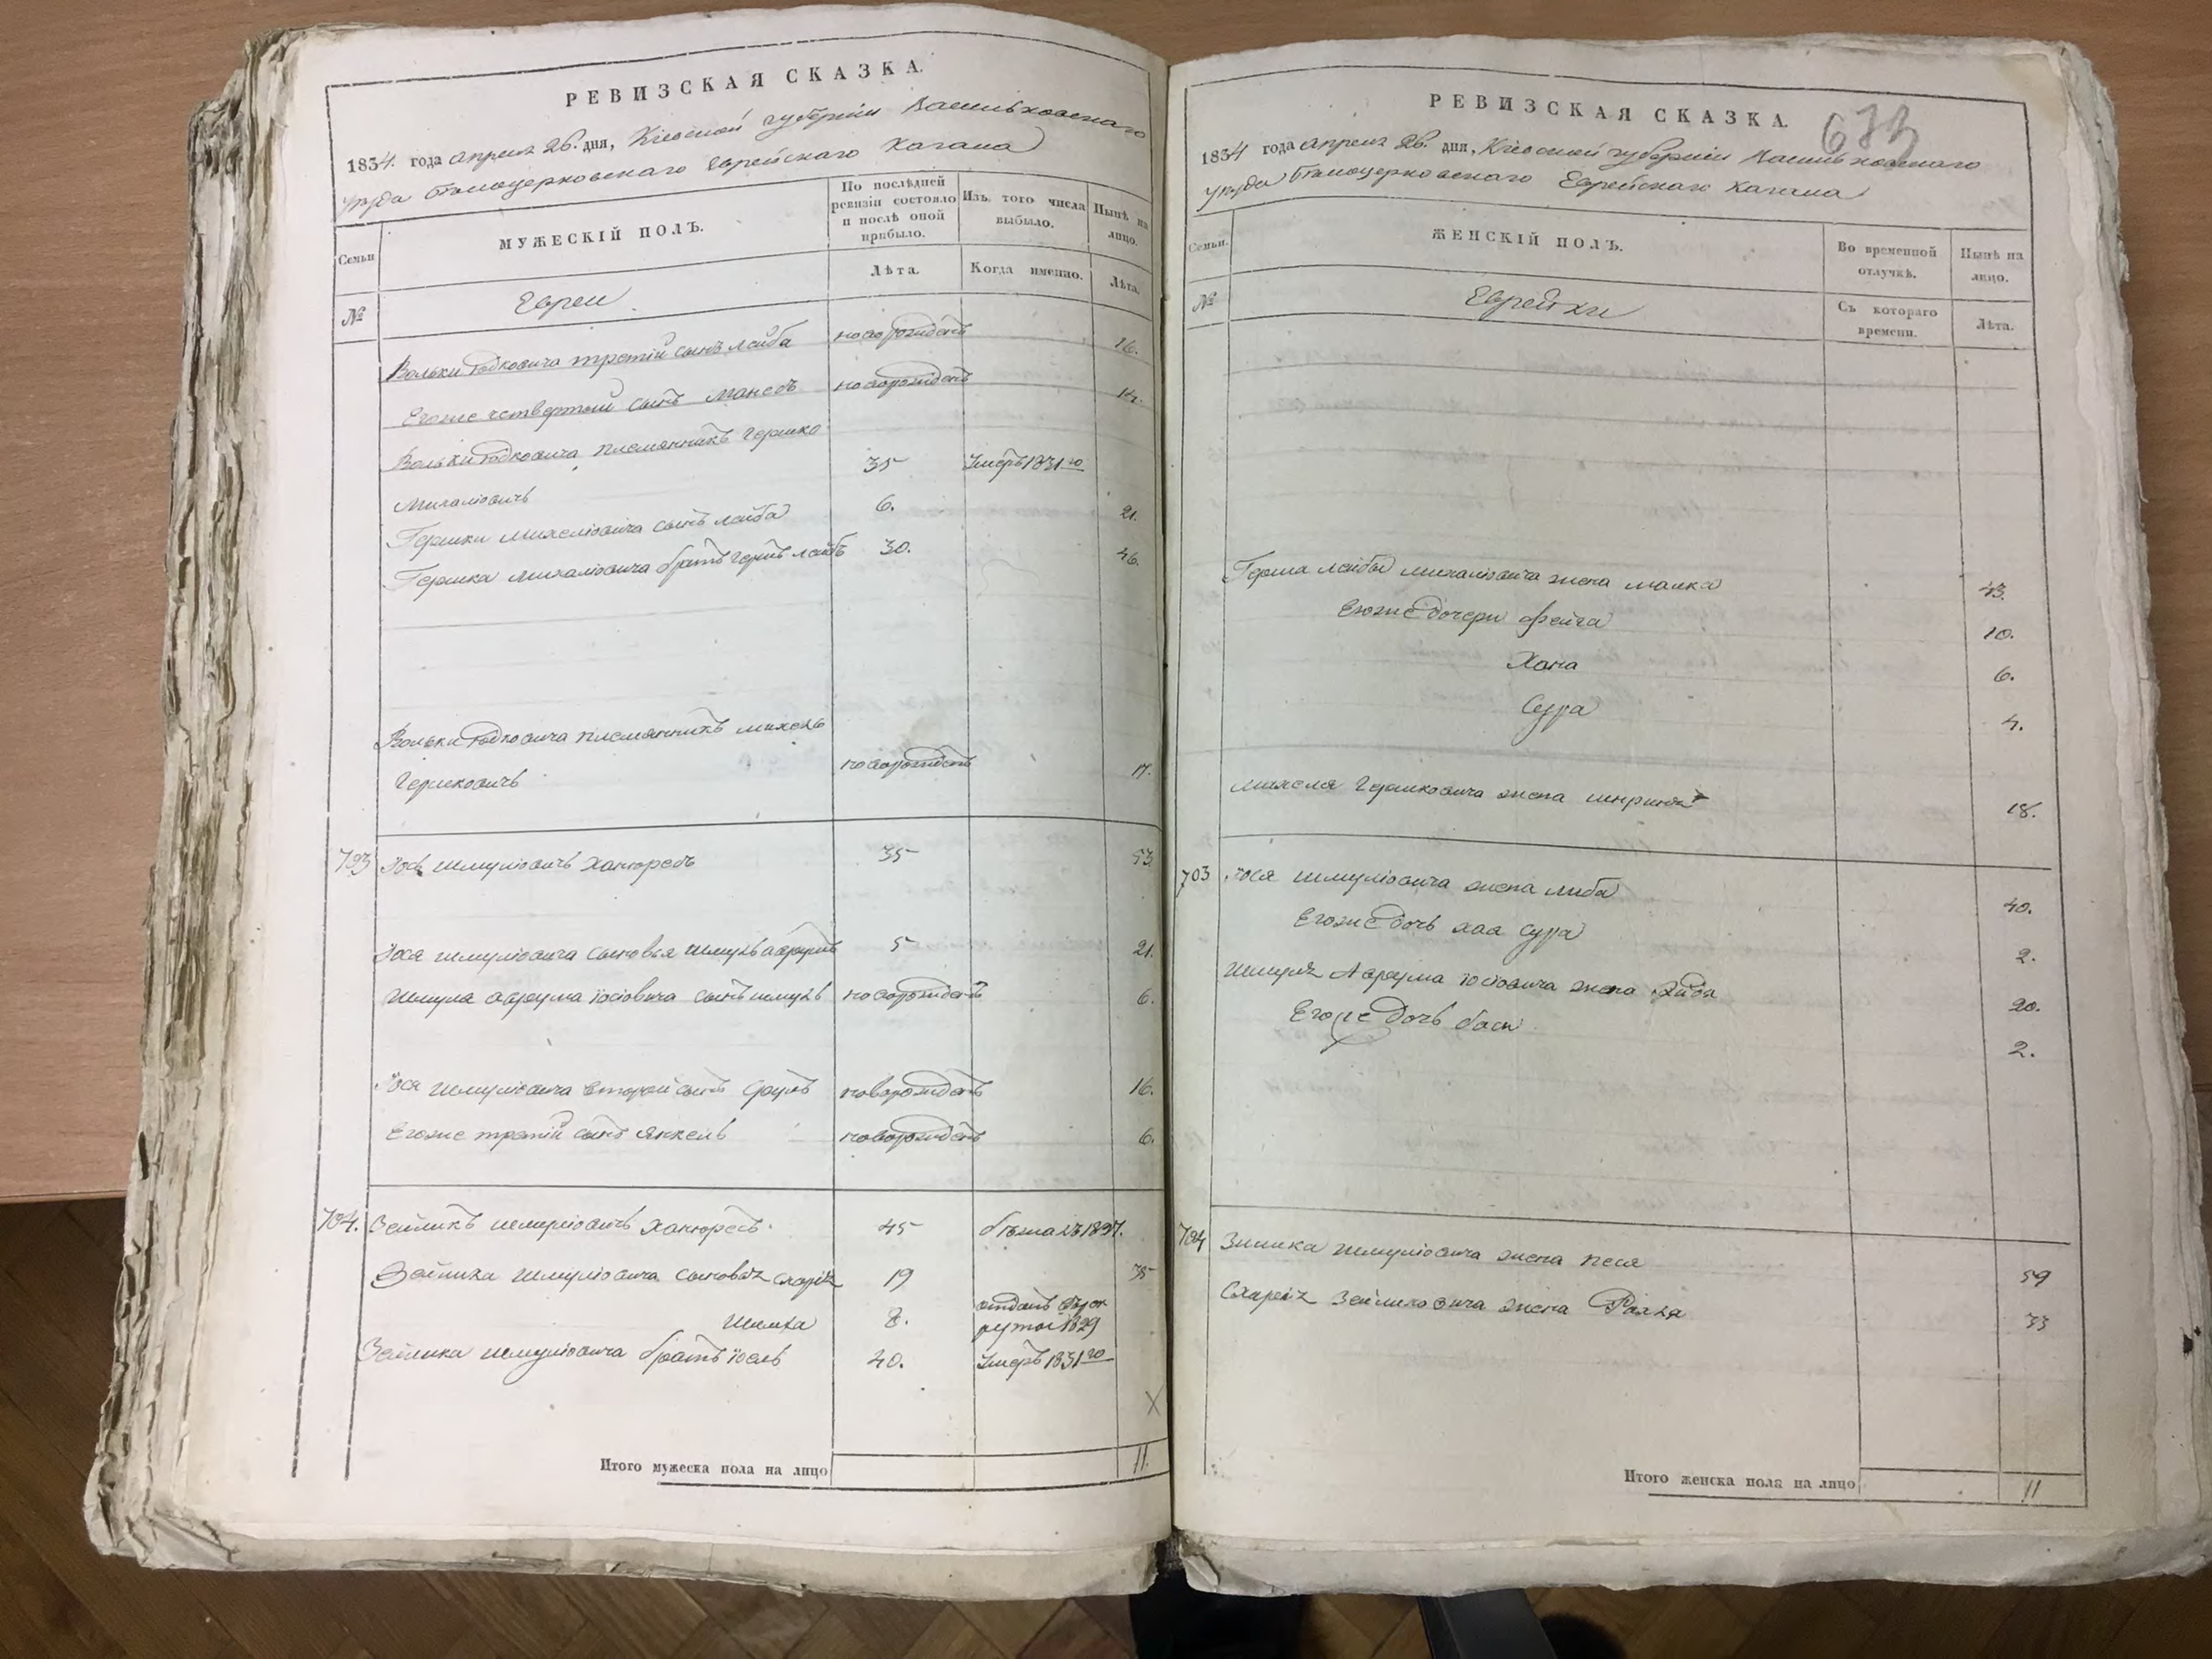 РЕВИЗСКАЯ СКАЗКА.
1834. года апреля 26. дня, Кіевской губерніи Васильковскаго
уезда Белоцерковскаго Еврейскаго Кагала
Семьи
МУЖЕСКІЙ ПОЛЪ.
По послѣдней ревизіи состояло и послѣ оной прибыло.
Изъ того числа выбыло.
Нынѣ на лицо.
Лѣта.
Когда именно.
Лѣта.
№
Евреи
Вольки Юдковича третій сынъ Лейба новорожденъ 16.
Егоже четвертый сынъ новорожденъ 14.
Вольки Юдковича племянникъ Гершко
Михаліовичъ 35 Умеръ 1831го
Гершки Михеліовича сынъ Лейба 6. 21.
Гершка Михаліовича братъ Герш Лейбъ 30. 46.
Вольки Юдковича племянникъ Михель
Гершковичъ новорожденъ 17.
703 Іось Шмуліовичъ 35 53
Іося Шмуліовича сыновья Шмуль Аврумъ 5 21.
Шмуля Аврума Іосіовича сынъ Шмуль новорожденъ 6.
Іося Шмуліовича второй сынъ Сруль новорожденъ 16.
Егоже третій сынъ Янкель новорожденъ 6.
704. Зейликъ Шмуліовичъ 45
Зейлика Шмуліовича сыновья 19 35
8. отданъ рекруты 1829
Зейлика Шмуліовича братъ Іосль 40. Умеръ 1831го
X
Итого мужеска пола на лицо 11.
673
РЕВИЗСКАЯ СКАЗКА.
1834 года апреля 26. дня, Кіевской губерніи Васильковскаго
уезда Белоцерковскаго Еврейскаго Кагала
Семьи.
ЖЕНСКІЙ ПОЛЪ.
Во временной отлучкѣ.
Нынѣ на лицо.
№
Еврейки
Съ котораго времени.
Лѣта.
Герша Лейбы Михаліовича жена Малка 43.
Егоже дочери Фейга 10.
Хана 6.
Сура 4.
Михеля Гершковича жена 18.
703 Іося Шмуліовича жена Либа 40.
Егоже дочь Хая Сура 2.
Шмуля Аврума Іосіовича жена 20.
Егоже дочь Бася 2.
704 Зилика Шмуліовича жена Песя 59
Зейликовича жена 33
Итого женска пола на лицо 11